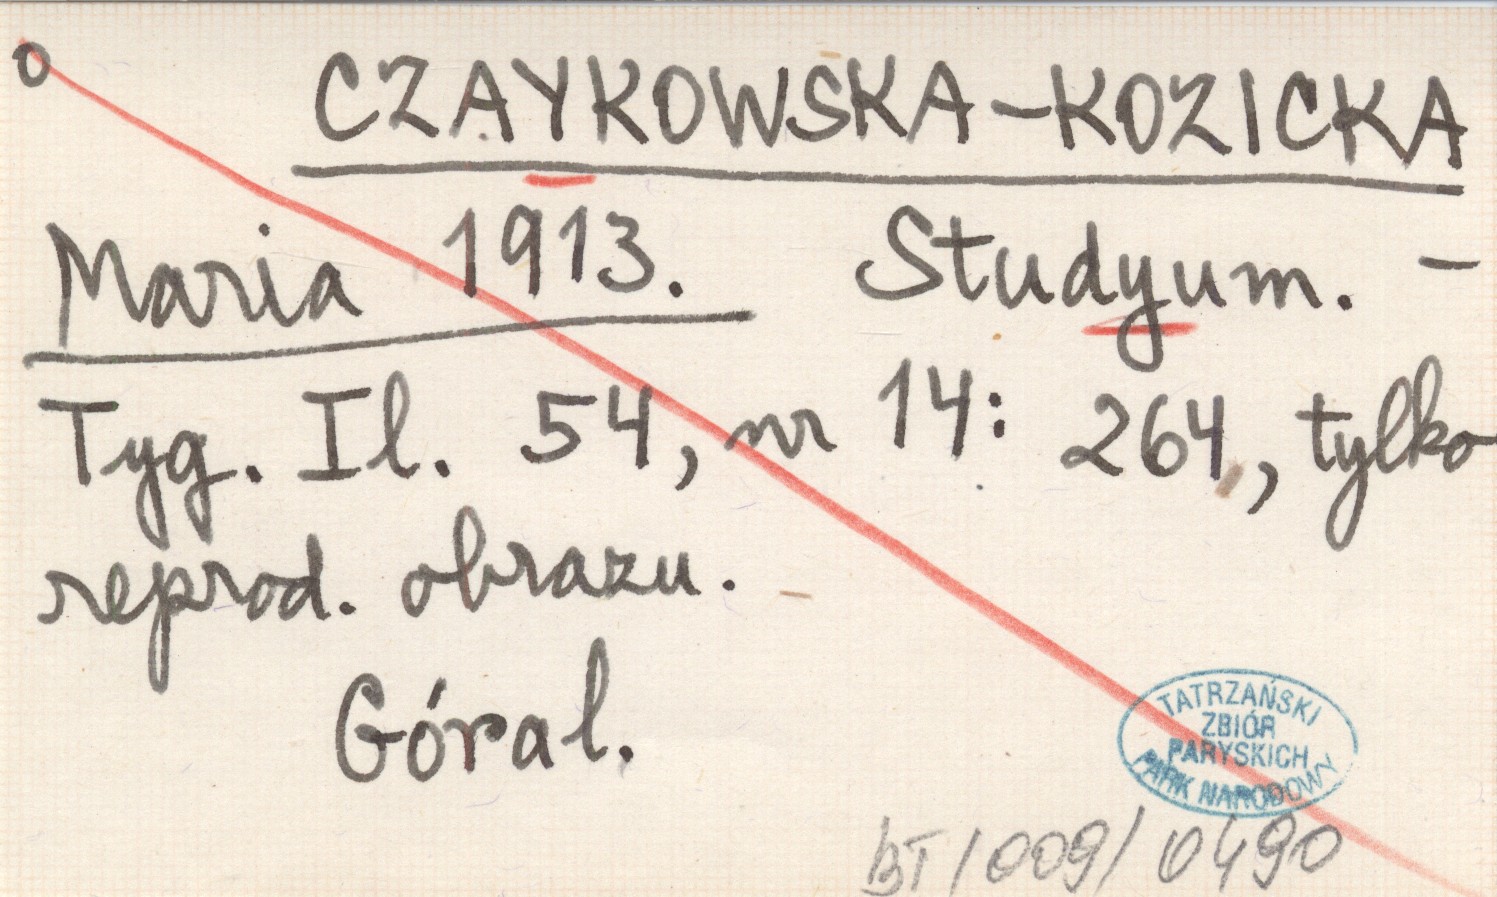 o CZAYKOWSKA-KOZICKA
Maria 1913. Studyum. -
Tyg. Il. 54, nr 14: 264, tylko
reprod. obrazu.
Góral.
TATRZAŃSKI
ZBIÓR
PARYSKICH
PARK NARODOWY
BT/009/0490